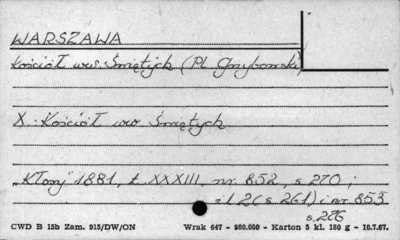 WARSZAWA
Kościół ww. Świętych (Pl. Grzybowski)
X. Kościół ww Świętych
"Kłosy" 1881, t. XXXIII, nr. 852, s 270;
il 2 (s 261) i nr 853
s. 276
CWD B 15b Zam. 915/DW/ON Wrak 647 - 980.000 - Karton 5 kl. 180 g - 10.7.67.